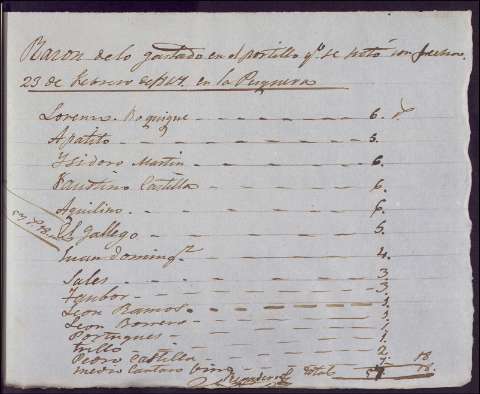 Razon de lo gastado en el portillo qe se hizo con fecha
23 de Febrero de 1864 en la Pesquera
Lorenzo Boquique - - - - - 6. r
Apatito - - - - - 5.
Ysidoro Martin - - - - - 6.
Faustino Castilla - - - - - 6.
Aquilino - - - - - 6.
El Gallego - - - - - 5.
Juan Domingz - - - - - 4.
Sales - - - - - 3
- - - - - 3
Leon Ramos - - - - - 1
Leon Borrero - - - - - 1
Portugues - - - - - 1.
- - - - - 1
Pedro Castilla - - - - - 2
medio Cantaro vino - - - 7 18
Total 18.